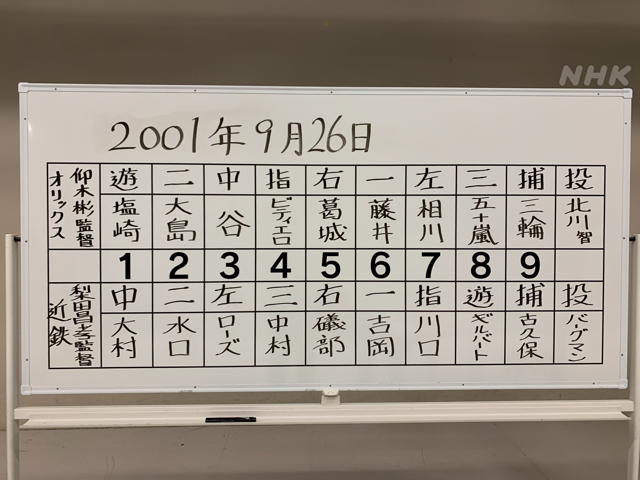 NHK
2001年9月26日
オリックス 仰木彬監督 遊 二 中 指 右 一 左 三 捕 投
塩崎 大島 谷 ビティエロ 葛城 藤井 相川 五十嵐 三輪 北川智
1 2 3 4 5 6 7 8 9
近鉄 梨田昌孝監督 中 二 左 三 右 一 指 遊 捕 投
大村 水口 ローズ 中村 礒部 吉岡 川口 ギルバート 古久保 バーグマン